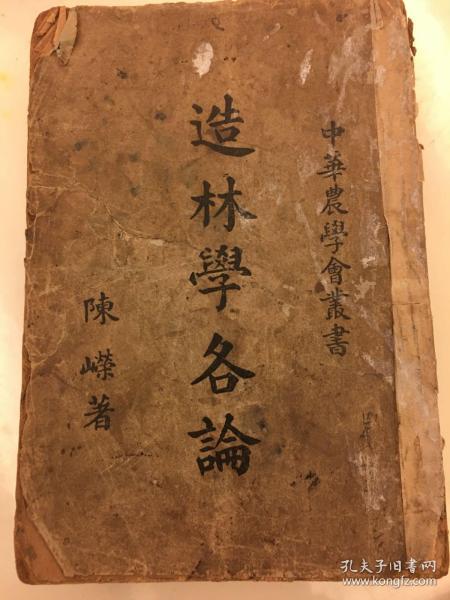 中華農學會叢書
造林學各論
陳嶸著
孔夫子旧书网
www.kongfz.com